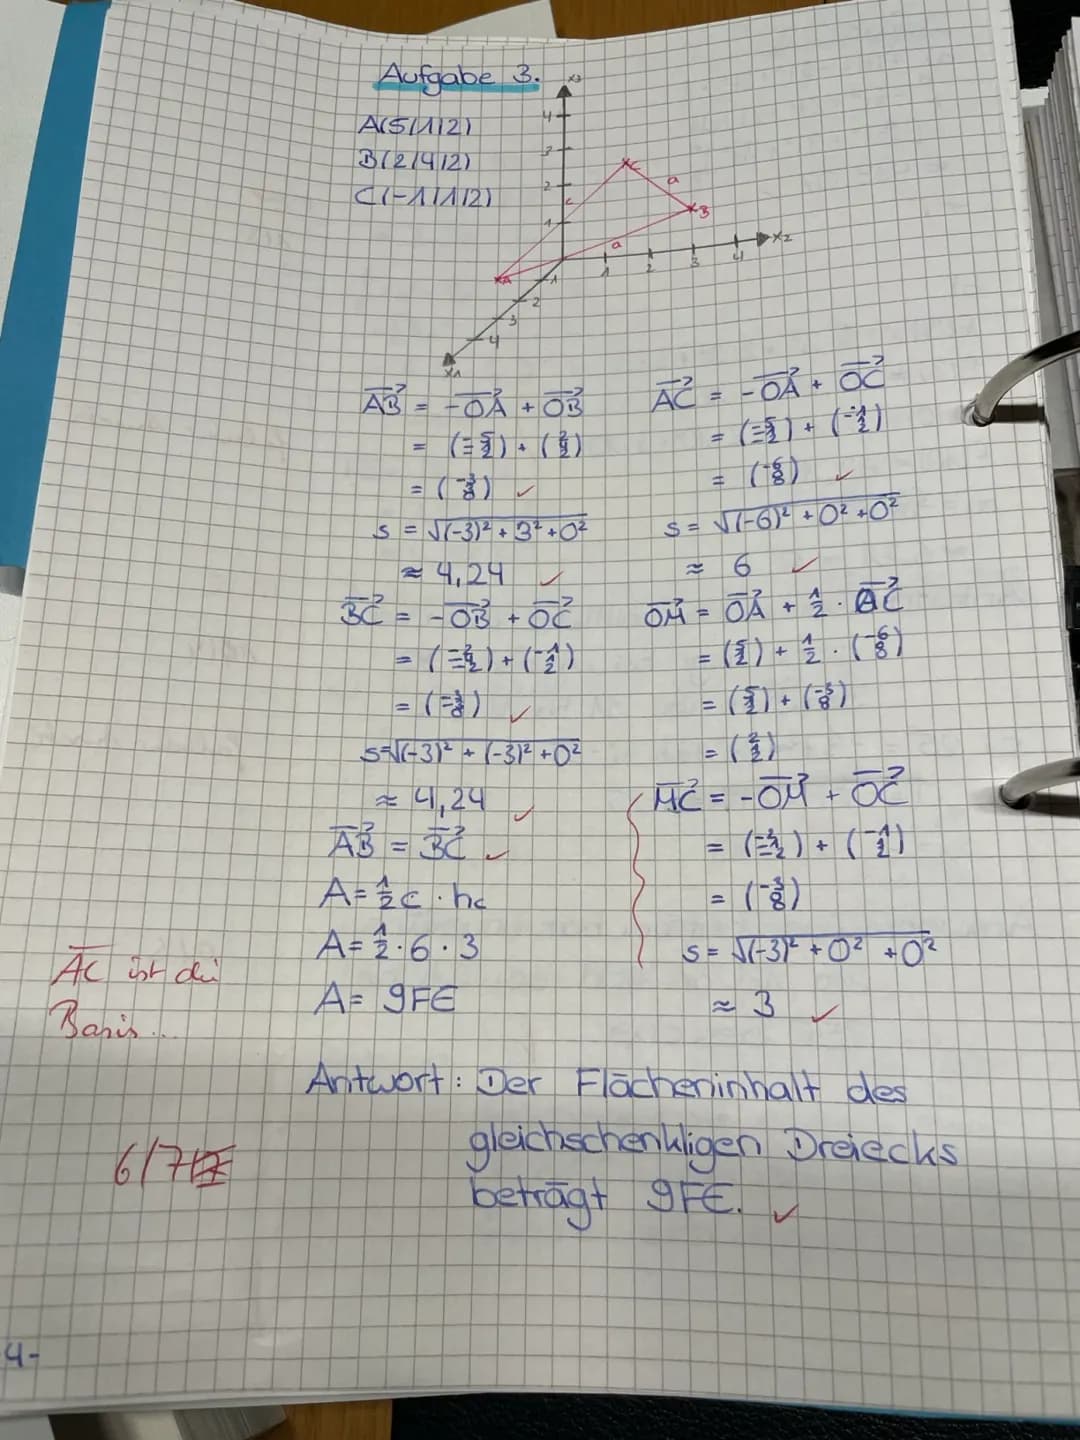 Aufgabe 3.
A(5|1|2)
B(2|4|2)
C(-1|1|2)
x3
4
3
2
1
C
a
B
c
a
A
1 2 3 4 x2
1
2
3
4
x1
AB = -OA + OB
= (-5 -1 -2) + (2 4 2)
= (-3 3 0) ✓
s = √(-3)² + 3² + 0²
≈ 4,24 ✓
BC = -OB + OC
= (-2 -4 -2) + (-1 1 2)
= (-3 -3 0) ✓
s=√(-3)² + (-3)² + 0²
≈ 4,24 ✓
AB = BC ✓
A = ½ c · hc
A = ½ · 6 · 3
A = 9FE
AC = -OA + OC
= (-5 -1 -2) + (-1 1 2)
= (-6 0 0) ✓
s = √(-6)² + 0² + 0²
≈ 6 ✓
OM = OA + ½ · AC
= (5 1 2) + ½ · (-6 0 0)
= (5 1 2) + (-3 0 0)
= (2 1 2)
MC = -OM + OC
= (-2 -1 -2) + (-1 1 2)
= (-3 0 0)
s = √(-3)² + 0² + 0²
≈ 3 ✓
AC ist die
Basis...
Antwort: Der Flächeninhalt des
gleichschenkligen Dreiecks
beträgt 9FE. ✓
6/7
4-